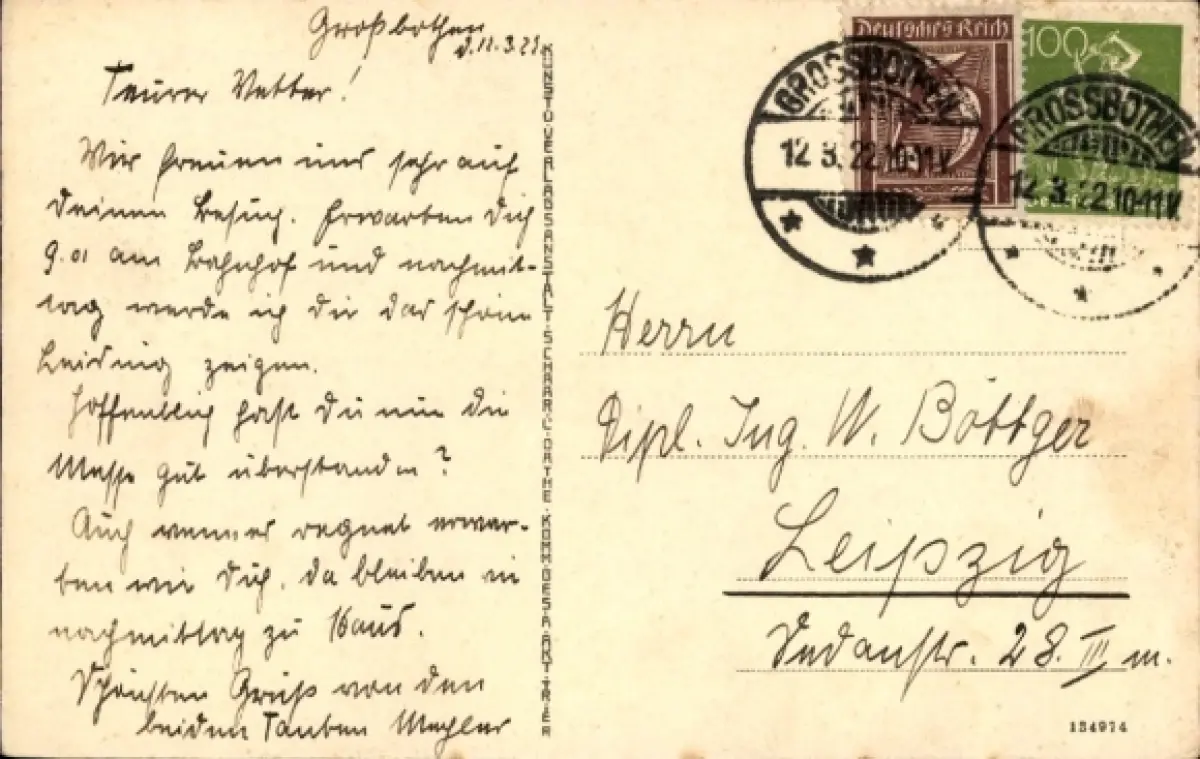 Großbothen
d. 11.3.22
Teurer Vetter!
Wir freuen uns sehr auf
Deinen Besuch. Erwarten Dich
9.01 am Bahnhof und nachmit-
tag werde ich dir das schöne
Leisnig zeigen.
Hoffentlich hast Du nun die
Messe gut überstanden?
Auch wenn es regnet erwar-
ten wir Dich, da bleiben wir
nachmittag zu Haus.
Schönsten Gruß von den
beiden Tanten
KUNST U. VERLAGSANSTALT SCHAAR & DATHE KOMM. GES. A. AKT. TRIER
Deutsches Reich
75
100
GROSSBOTHEN
12.3.22.10-11V.
GROSSBOTHEN
12.3.22.10-11V.
Herrn
Dipl. Ing. W. Böttger
Leipzig
Sedanstr. 28. III m.
134974